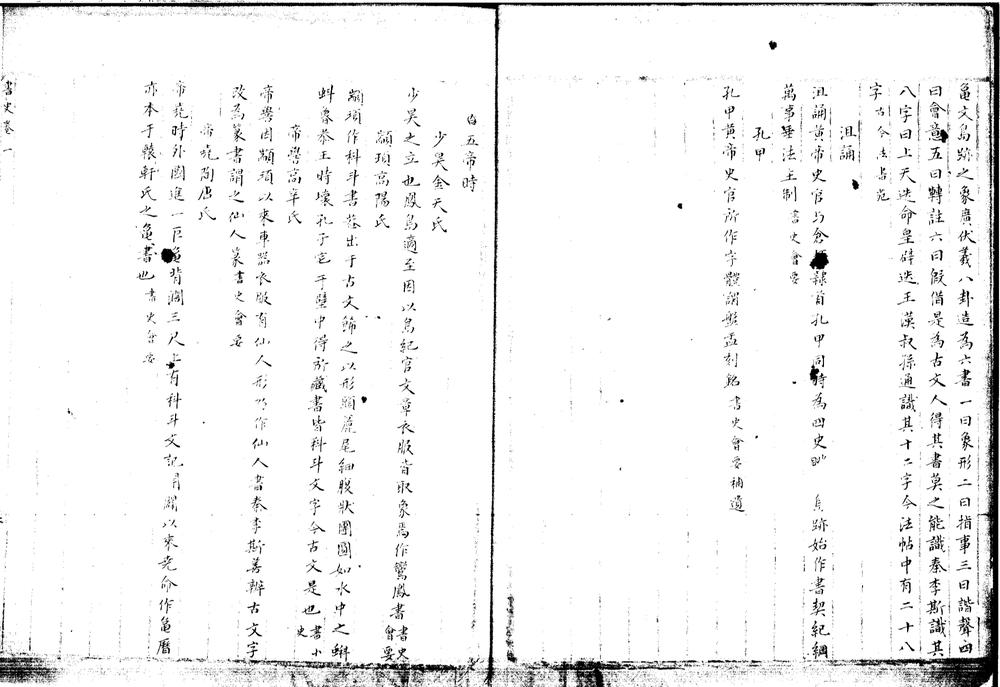 龜文鳥跡之象廣伏羲八卦造為六書一曰象形二曰指事三曰諧聲四
曰會意五曰轉註六曰假借是為古文人得其書莫之能識秦李斯識其
八字曰上天迭命皇辟迭王漢叔孫通識其十二字今法帖中有二十八
字古今法書苑
沮誦
沮誦黃帝史官與倉頡隸首孔甲同時為四史 鳥跡始作書契紀綱
萬事垂法立制 書史會要
孔甲
孔甲黃帝史官所作字體謂盤盂刻銘 書史會要補遺
五帝時
少昊金天氏
少昊之立也鳳鳥適至因以鳥紀官文章衣服皆取象焉作鸞鳳書書史會要
顓頊高陽氏
顓頊作科斗書蓋出于古文飾之以形頭麤尾細腹狀團圓如水中之蝌
蚪魯恭王時壞孔子宅于壁中得所藏書皆科斗文字今古文是也書小史
帝嚳高辛氏
帝嚳因顓頊以來車器衣服有仙人形乃作仙人書秦李斯善辨古文字
改為篆書謂之仙人篆書史會要
帝堯陶唐氏
帝堯時外國進一巨龜背濶三尺上有科斗文記開闢以來堯命作龜曆
亦本于軒氏之龜書也 書史會要
書史卷一